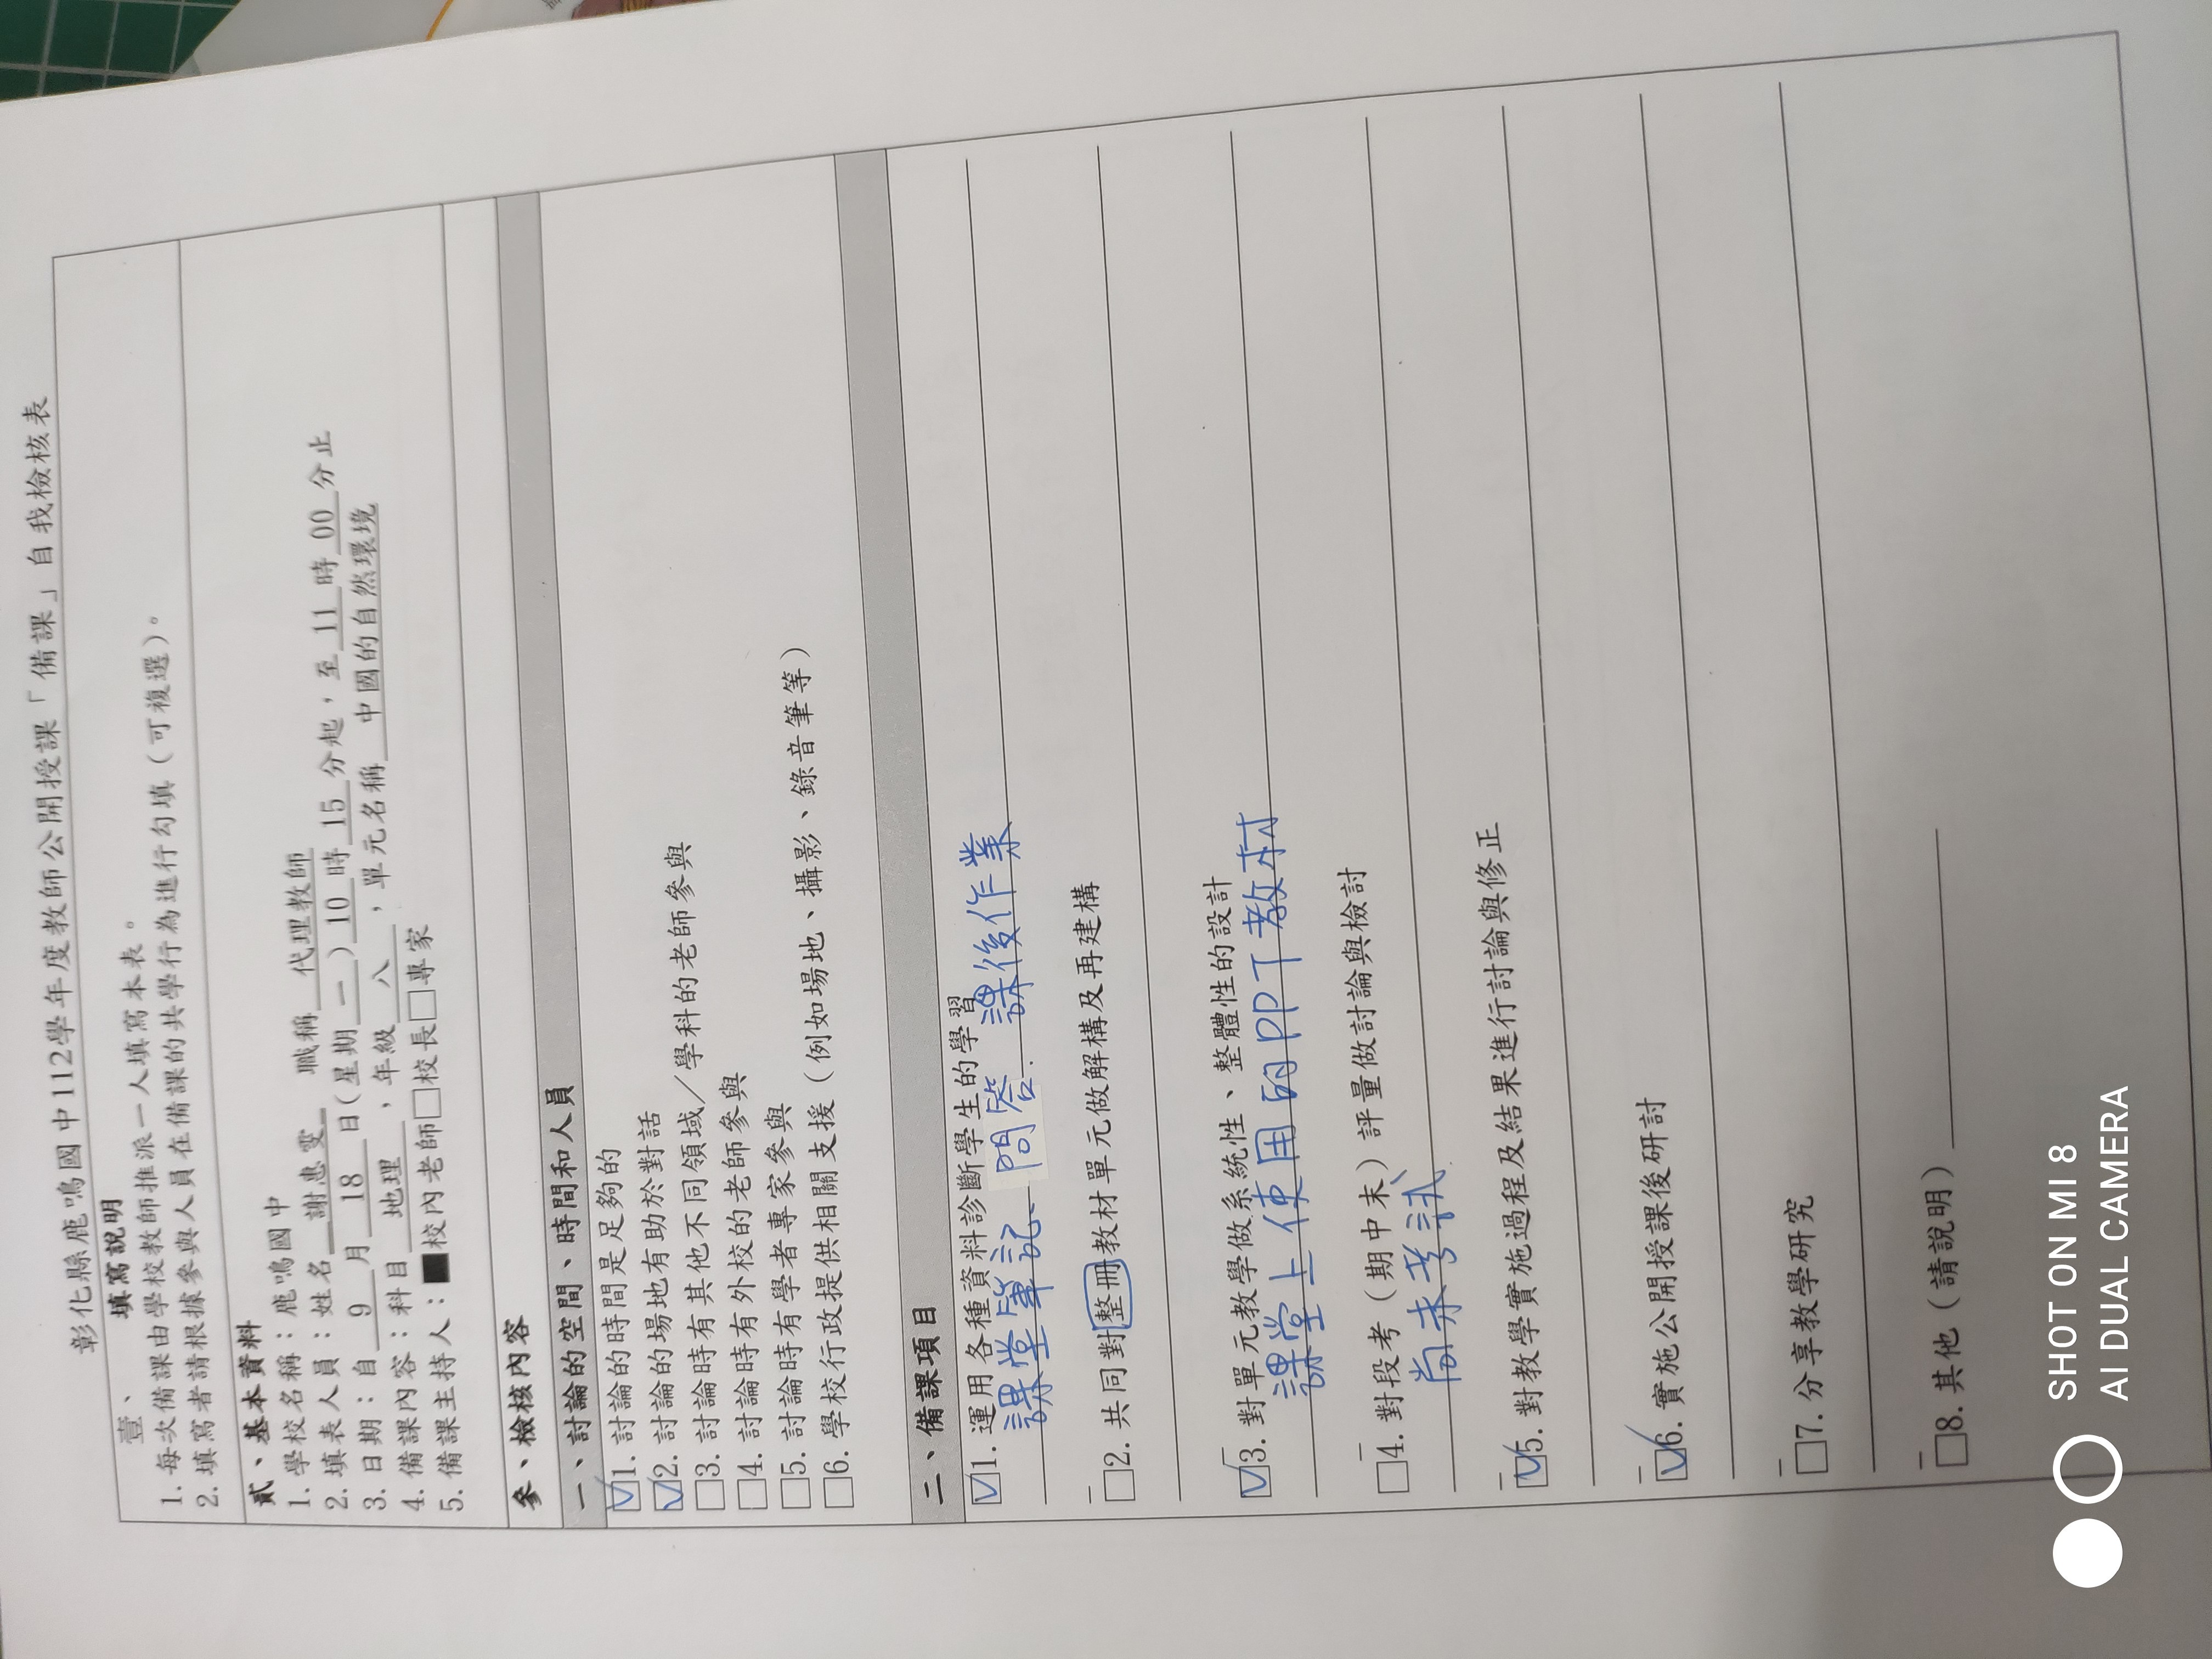 彰化縣鹿鳴國中112學年度教師公開授課「備課」自我檢核表
壹、 填寫說明
1. 每次備課由學校教師推派一人填寫本表。
2. 填寫者請根據參與人員在備課的共學行為進行勾填（可複選）。
貳、基本資料
1. 學校名稱：鹿鳴國中
2. 填表人員：姓名 謝惠雯 職稱 代理教師
3. 日期：自 9 月 18 日(星期 一 ) 10 時 15 分起，至 11 時 00 分止
4. 備課內容：科目 地理 ，年級 八 ，單元名稱 中國的自然環境
5. 備課主持人：■校內老師□校長□專家
參、檢核內容
一、討論的空間、時間和人員
☑1. 討論的時間是足夠的
☑2. 討論的場地有助於對話
□3. 討論時有其他不同領域／學科的老師參與
□4. 討論時有外校的老師參與
□5. 討論時有學者專家參與
□6. 學校行政提供相關支援（例如場地、攝影、錄音筆等）
二、備課項目
☑1. 運用各種資料診斷學生的學習
課堂筆記、問答、課後作業
□2. 共同對整冊教材單元做解構及再建構
☑3. 對單元教學做系統性、整體性的設計
課堂上使用的PPT教材
□4. 對段考（期中末）評量做討論與檢討
尚未考試
☑5. 對教學實施過程及結果進行討論與修正
☑6. 實施公開授課後研討
□7. 分享教學研究
□8. 其他（請說明）
SHOT ON MI 8
AI DUAL CAMERA